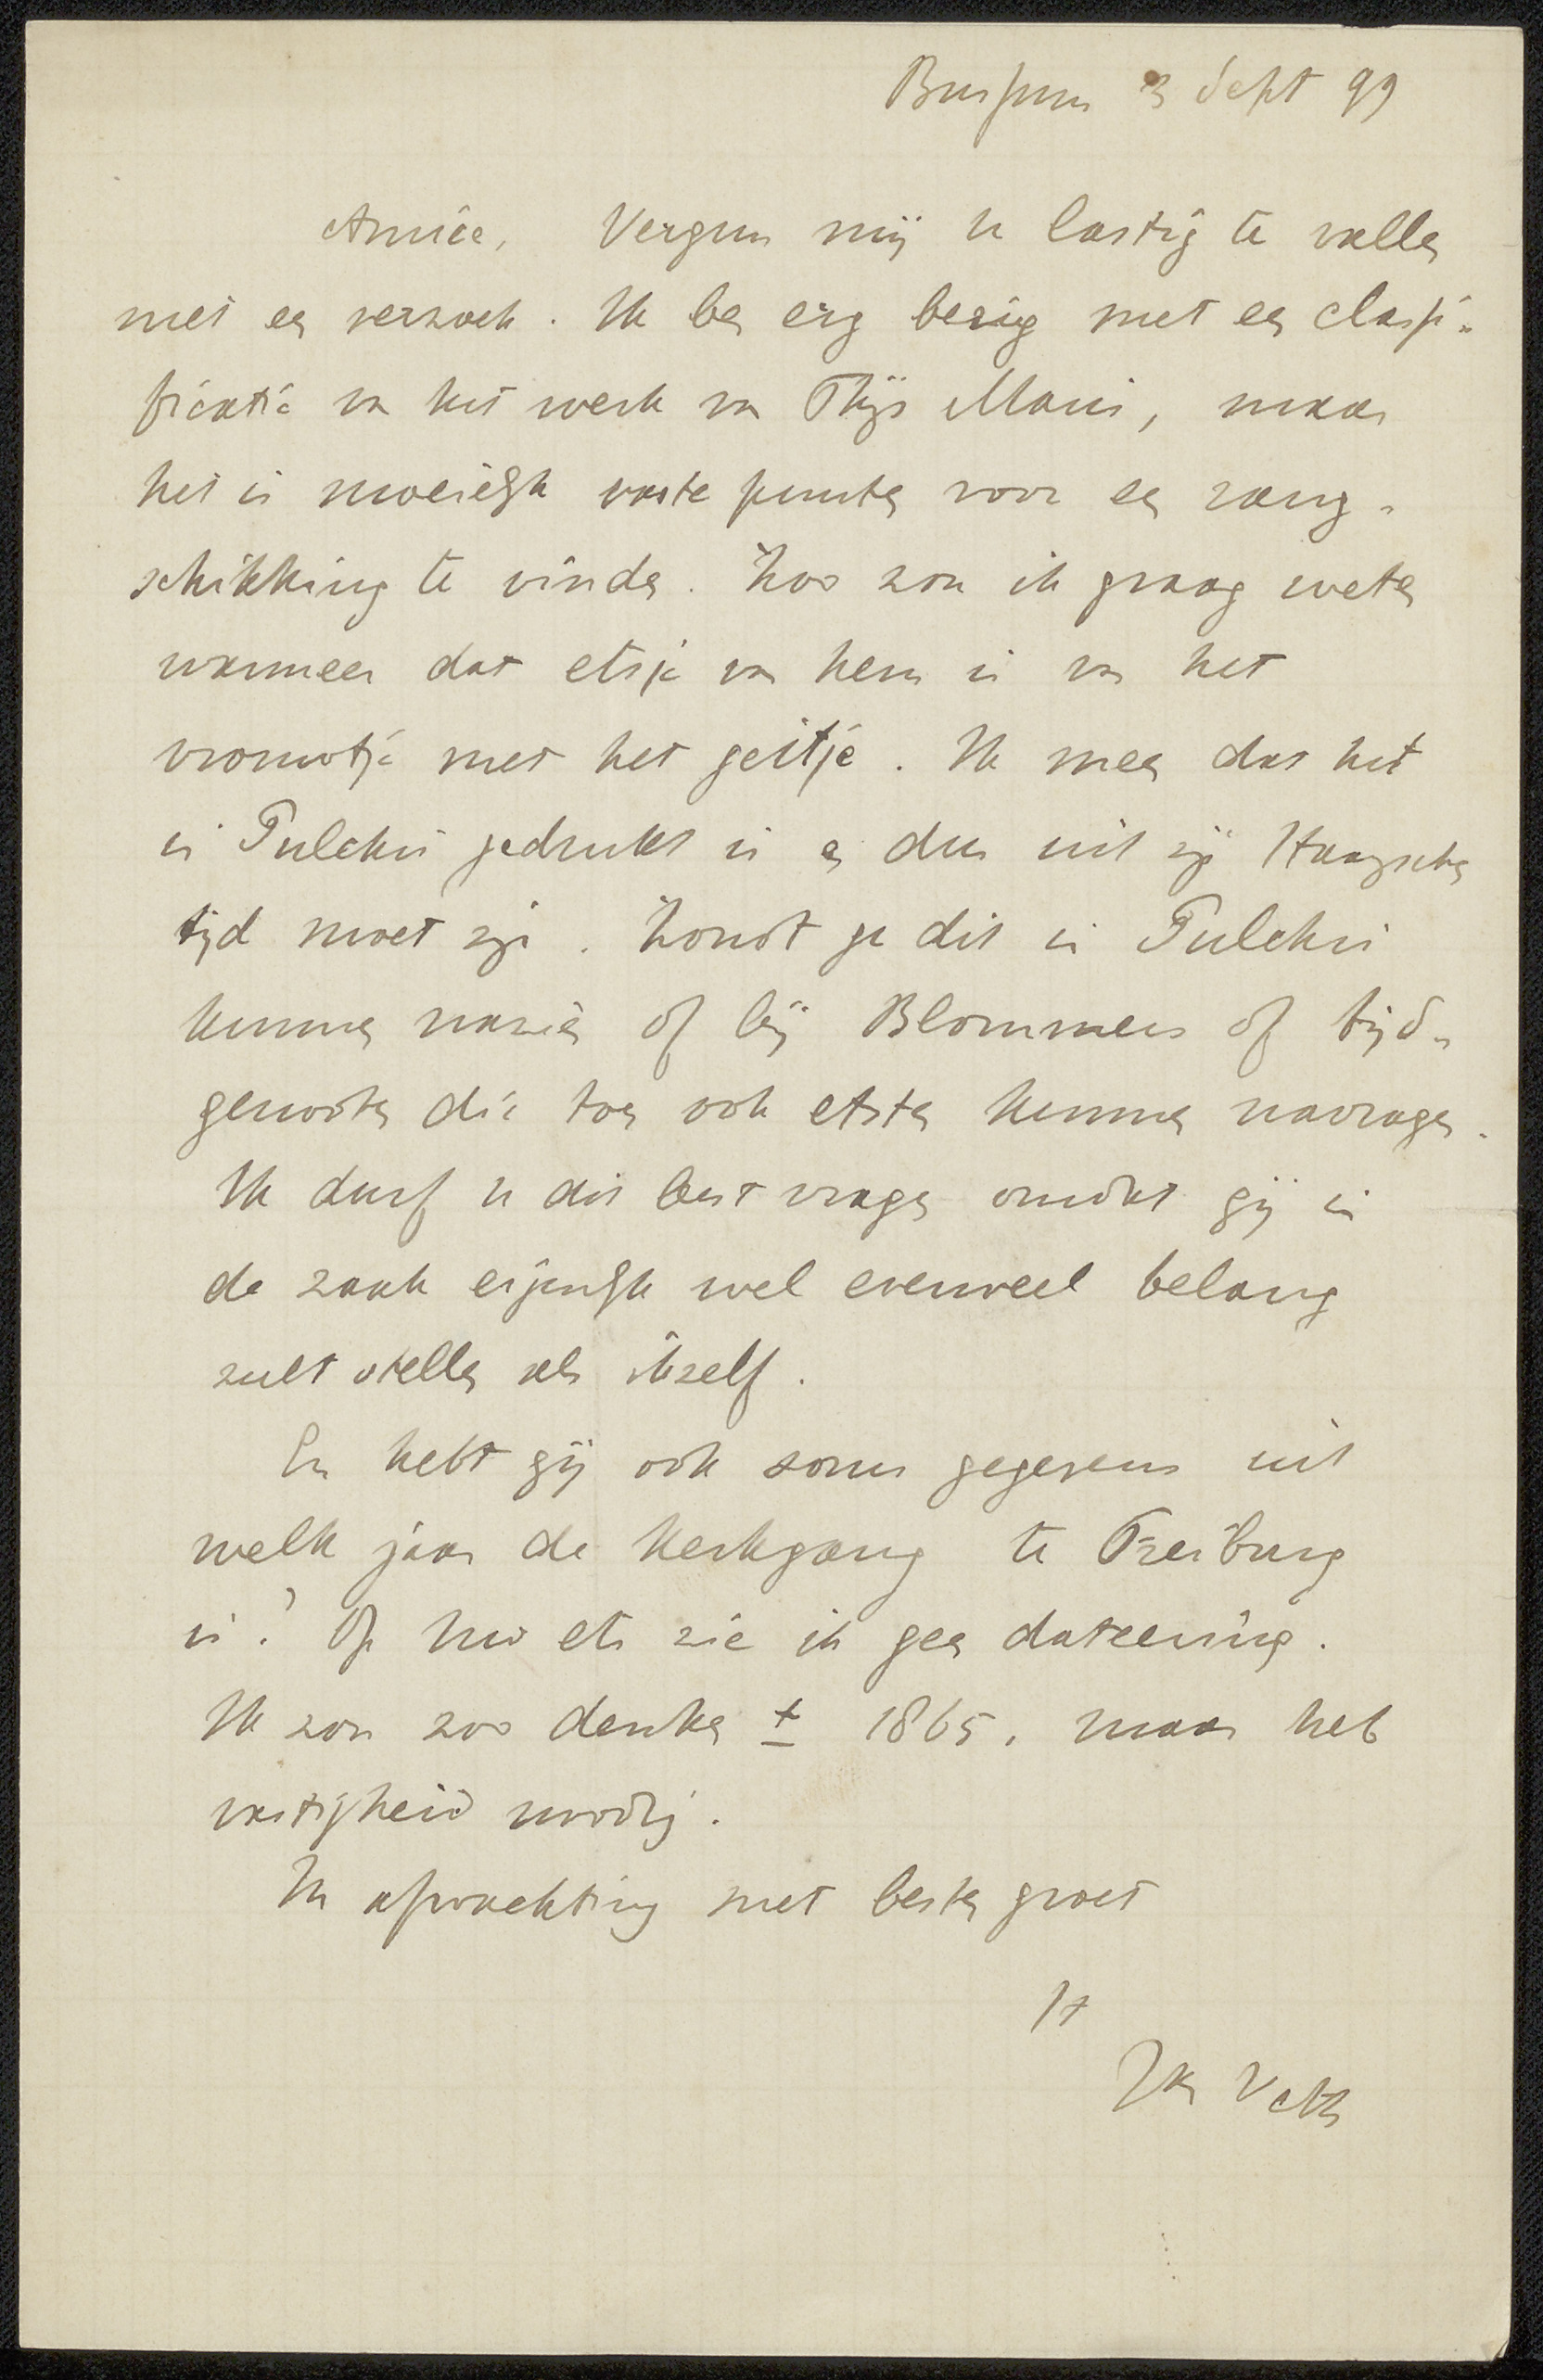 Bussum 3 Sept 99
Amice, Vergun mij u lastig te vallen
met een verzoek. Ik ben erg bezig met een classi-
ficatie van het werk van Thijs Maris, maar
het is moeielijk vaste punten voor een rang-
schikking te vinden. Zoo zou ik graag weten
wanneer dat etsje van hem is van het
vrouwtje met het geitje. Ik meen dat het
in Pulchri gedrukt is en dus uit zijn Haagschen
tijd moet zijn. Zoudt ge dit in Pulchri
kunnen nazien of bij Blommers of tijd-
genooten die toen ook etsten kunnen navragen.
Ik durf u dit best vragen omdat gij in
de zaak eigenlijk wel evenveel belang
zult stellen als ikzelf.
En hebt gij ook soms gegevens uit
welk jaar de Kerkgang te Freiburg
is? Op uw ets zie ik geen dateering.
Ik zou zoo denken ± 1865, maar heb
vastigheid noodig.
In afwachting met besten groet
tt
Jan Veth